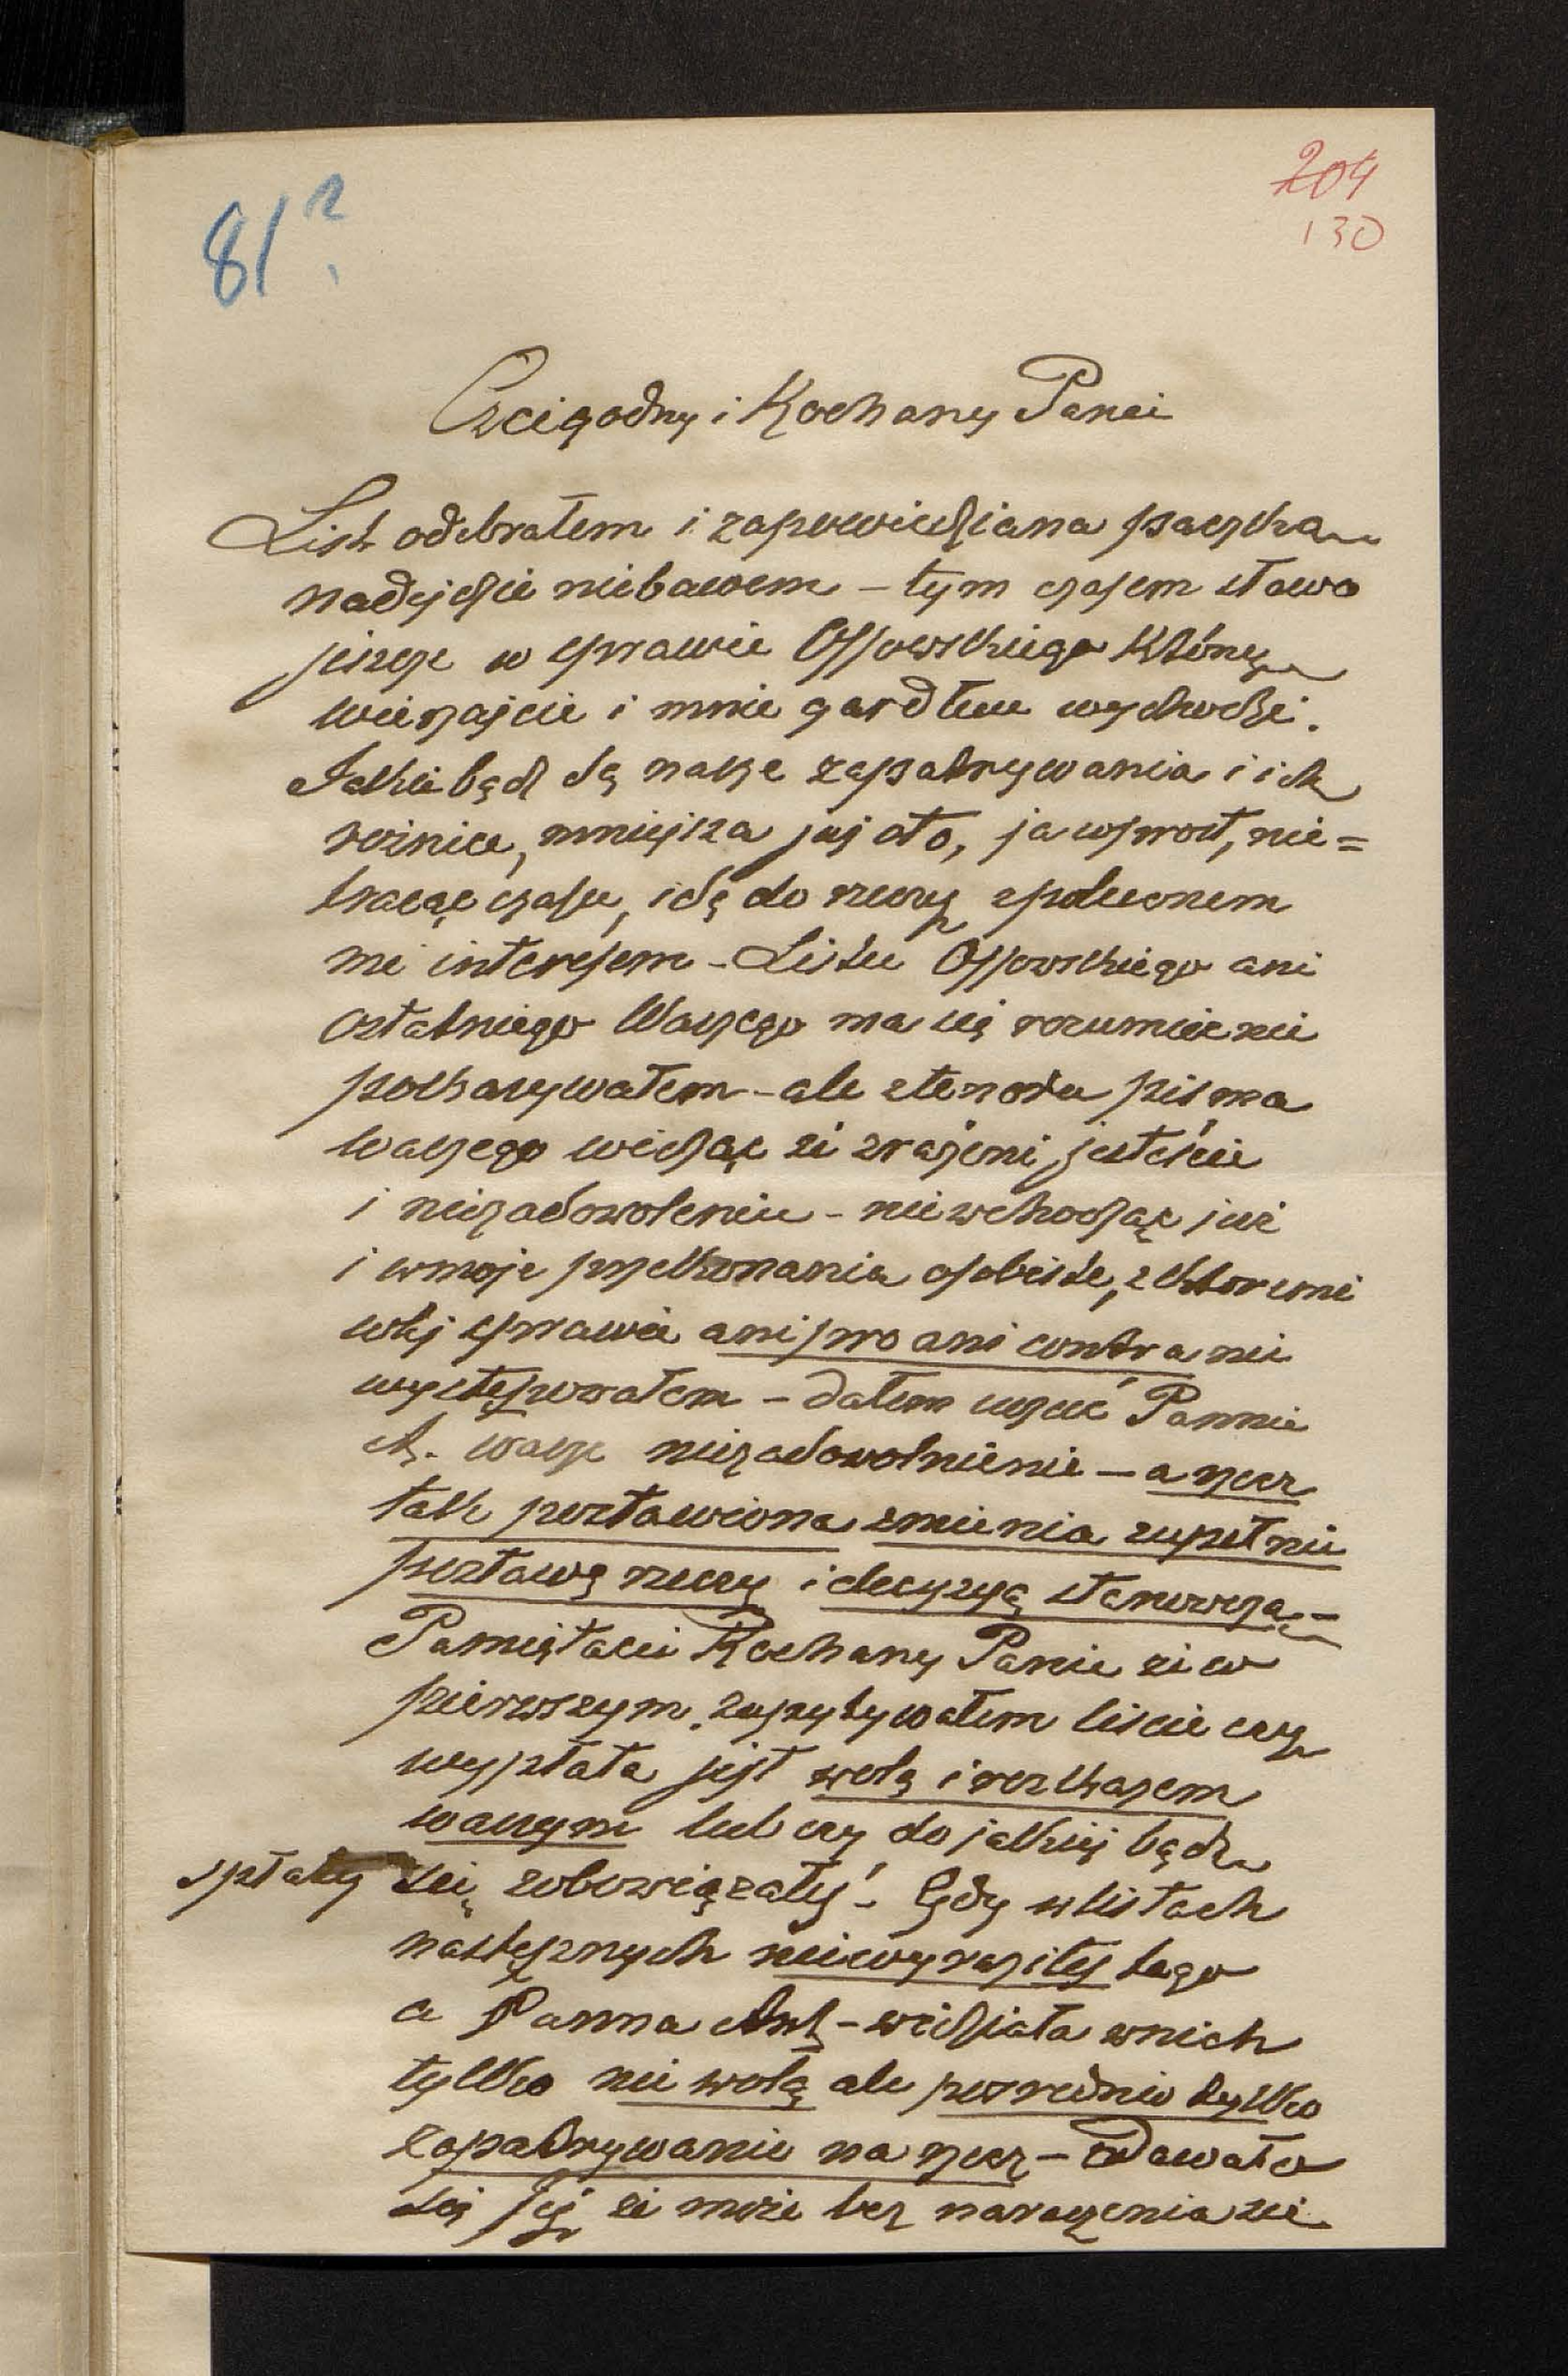 204
130
81?
Czcigodny i Kochany Panie
List odebrałem i zapowiedziana paczka
nadejdzie niebawem – tym czasem słowo
jeszcze w sprawie Ossowskiego który
wierzajcie i mnie gardłem wychodzi.
Jakie bądź są nasze zapatrywania i ich
rożnice, mniejsza już oto, ja wprost, nie=
tracąc czasu, idę do rzeczy zpoleconem
mi interesem – Listu Ossowskiego ani
ostatniego Waszego ma się rozumieć nie
pokazywałem – aleztenoru pisma
waszego widząc że zrażeni jesteście
i niezadowoleniu – niewchodząc już
i wmoje przekonania osobiste, zktoremi
wtej sprawie ani pro ani contra nie
występowałem – dałem uczuć Pannie
A. wasze niezadowolnienie – a rzecz
tak postawiona zmienia zupełnie
postawę rzeczy i decyzyą stanowczą –
Pamiętacie Kochany Panie że w
pierwszym zapytywałem liście czy
wypłata jest wolą i rozkazem
waszym lub czy do jakiej bądź
spłaty się zobowiązałyś – Gdy w listach
następnych niewyraziłeś tego
a Panna Ant – widziała wnich
tylko nie wolę ale pośrednio tylko
zapatrywanie na rzecz – zdawało
się Jej że może bez narażenia się